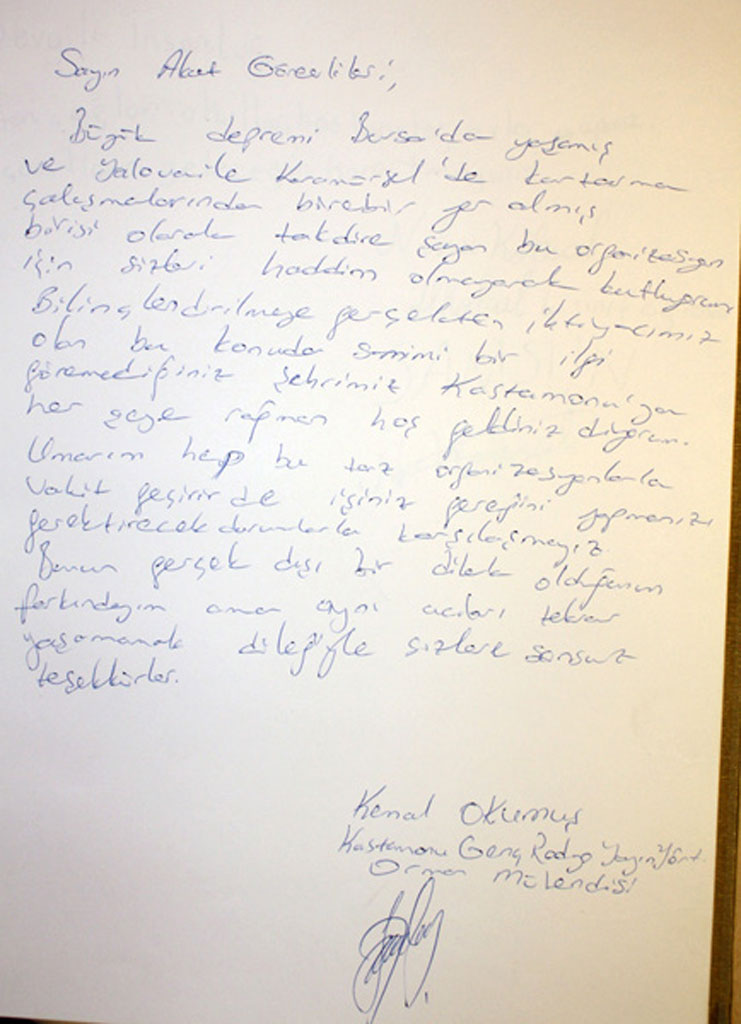 Sayın Akut Görevlileri,
Büyük depremi Bursa'da yaşamış
ve Yalova ile Karamürsel'de kurtarma
çalışmalarından birebir yer almış
birisi olarak takdire şayan bu organizasyon
için sizleri haddim olmayarak kutluyorum
Bilinçlendirilmeye gerçekten ihtiyacımız
olan bu konuda samimi bir ilgi
göremediğiniz şehrimiz Kastamonu'ya
her şeye rağmen hoş geldiniz diyorum.
Umarım hep bu tarz organizasyonlarla
vakit geçirir de işiniz gereğini yapmanızı
gerektirecek durumlarla karşılaşmayız.
Bunun gerçek dışı bir dilek olduğunun
farkındayım ama aynı acıları tekrar
yaşamamak dileğiyle sizlere sonsuz
teşekkürler.
Kemal Okumuş
Kastamonu Genç Radyo Yayın Yönt.
Orman Mühendisi